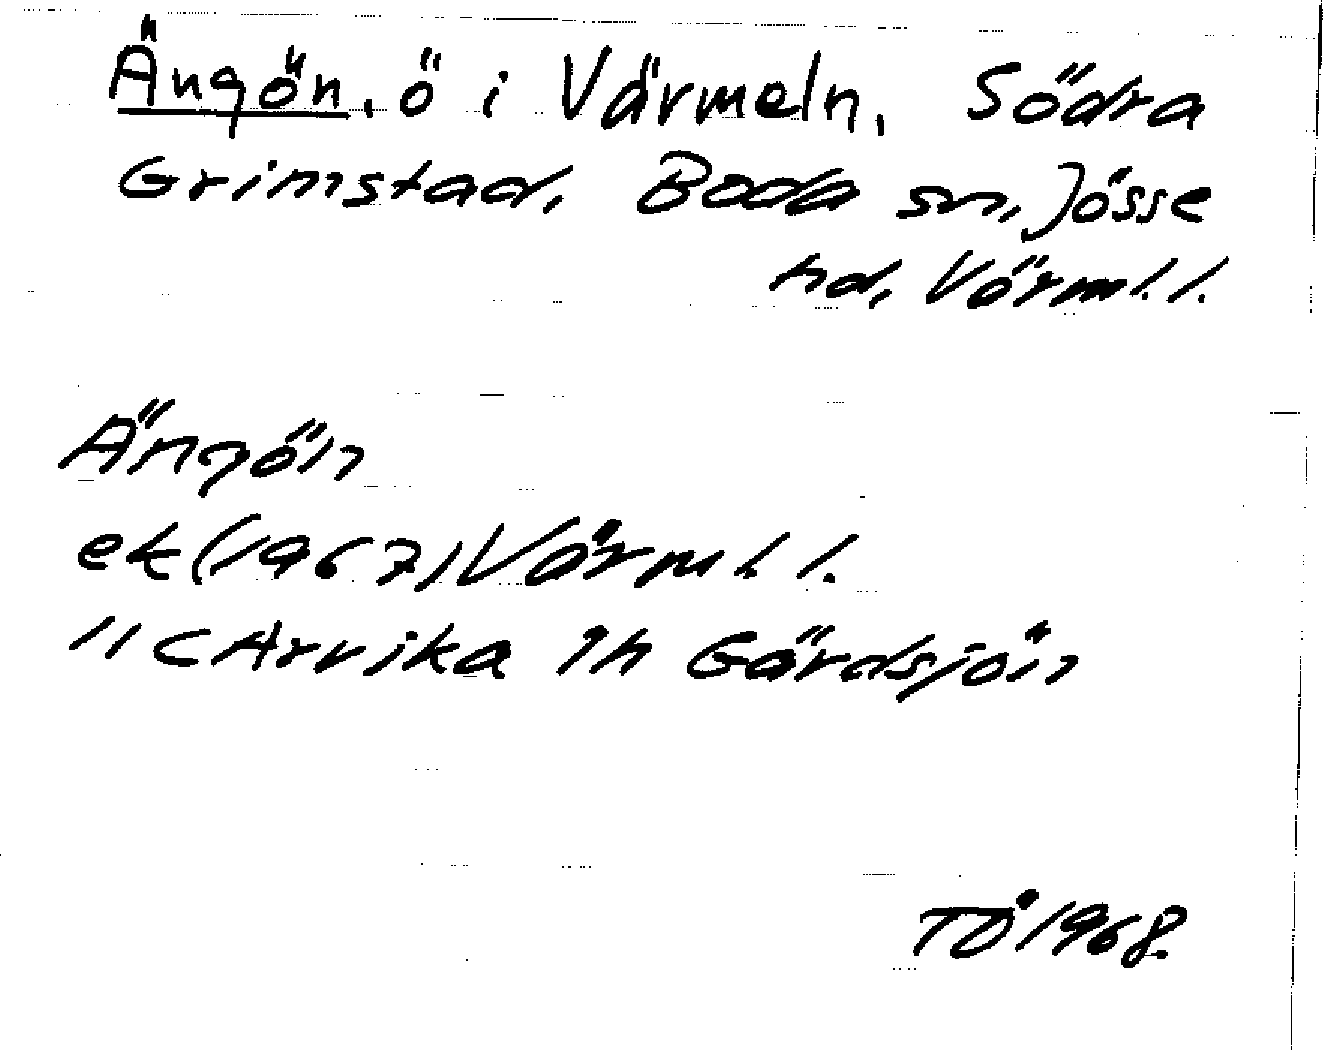 Ängön, ö i Värmeln, Södra
Grimstad, Boda sn, Jösse
hd, Värml. l.
Ängön
ek (1967) Värml. l.
11 C Arvika 1h Gärdsjön
TÖ 1968.